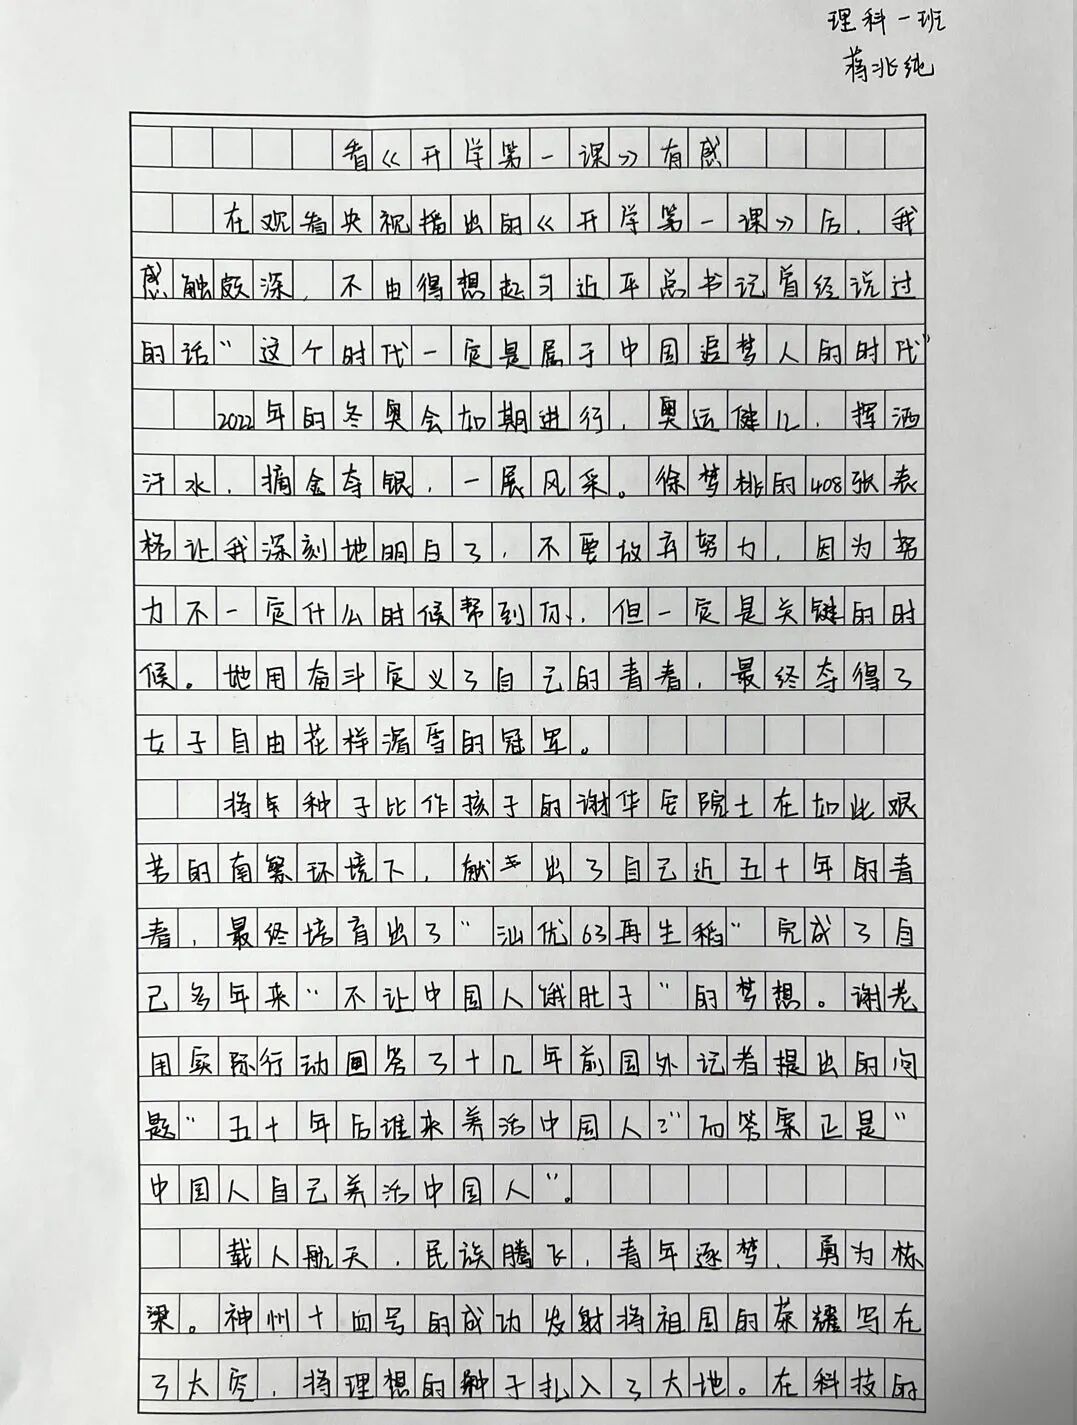 理科一班
蒋兆纯
看《开学第一课》有感
在观看央视播出的《开学第一课》后，我
感触颇深，不由得想起习近平总书记曾经说过
的话"这个时代一定是属于中国追梦人的时代"
2022年的冬奥会如期进行，奥运健儿，挥洒
汗水，摘金夺银，一展风采。徐梦桃的408张表
格让我深刻地明白了，不要放弃努力，因为努
力不一定什么时候帮到你，但一定是关键的时
候。她用奋斗定义了自己的青春，最终夺得了
女子自由花样滑雪的冠军。
将种子比作孩子的谢华安院士在如此艰
苦的南繁环境下，献出了自己近五十年的青
春，最终培育出了"汕优63再生稻"完成了自
己多年来"不让中国人饿肚子"的梦想。谢老
用实际行动回答了十几年前国外记者提出的问
题"五十年后谁来养活中国人？"而答案正是"
中国人自己养活中国人"。
载人航天，民族腾飞，青年逐梦，勇为栋
梁。神州十四号的成功发射将祖国的荣耀写在
了太空，将理想的种子扎入了大地。在科技的